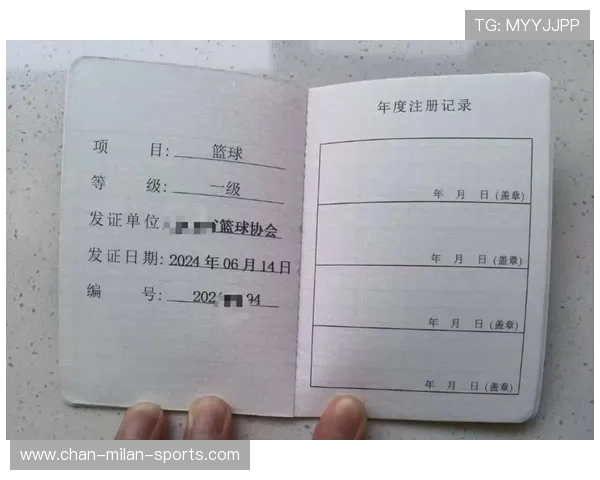 TG: MYYJJPP
项 目: 篮球
等 级: 一级
发证单位 省篮球协会
发证日期: 2024 年 06 月 14 日
编 号: 202 94
年度注册记录
年 月 日 (盖章)
年 月 日 (盖章)
年 月 日 (盖章)
年 月 日 (盖章)
www.chan-milan-sports.com